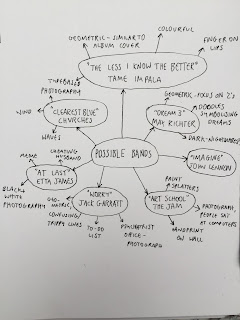 GEOMETRIC - SIMILAR TO
ALBUM COVER
COLOURFUL
FINGER ON
LIPS
"THE LESS I KNOW THE BETTER"
TAME IMPALA
TYPE BASED
PHOTOGRAPHY
GEOMETRIC - FOCUS ON Z's
DOODLES
SYMBOLISING
DREAMS
"DREAM 3"
MAX RICHTER
DARK - NIGHT
WIND
"CLEAREST BLUE"
CHVRCHES
WAVES
POSSIBLE BANDS
"IMAGINE"
JOHN LENNON
CHEATING
HUSBAND
"AT LAST"
ETTA JAMES
BLACK +
WHITE
PHOTOGRAPHY
"WORRY"
JACK GARRATT
GEO-
METRIC
CONFUSING/
TRIPPY LINES
TO-DO
LIST
PSYCHIATRIST
OFFICE -
PHOTOGRAPH
PAINT
SPLATTERS
"ART SCHOOL"
THE JAM
PHOTOGRAPH
PEOPLE SAT
AT COMPUTERS
HANDPRINT
ON WALL